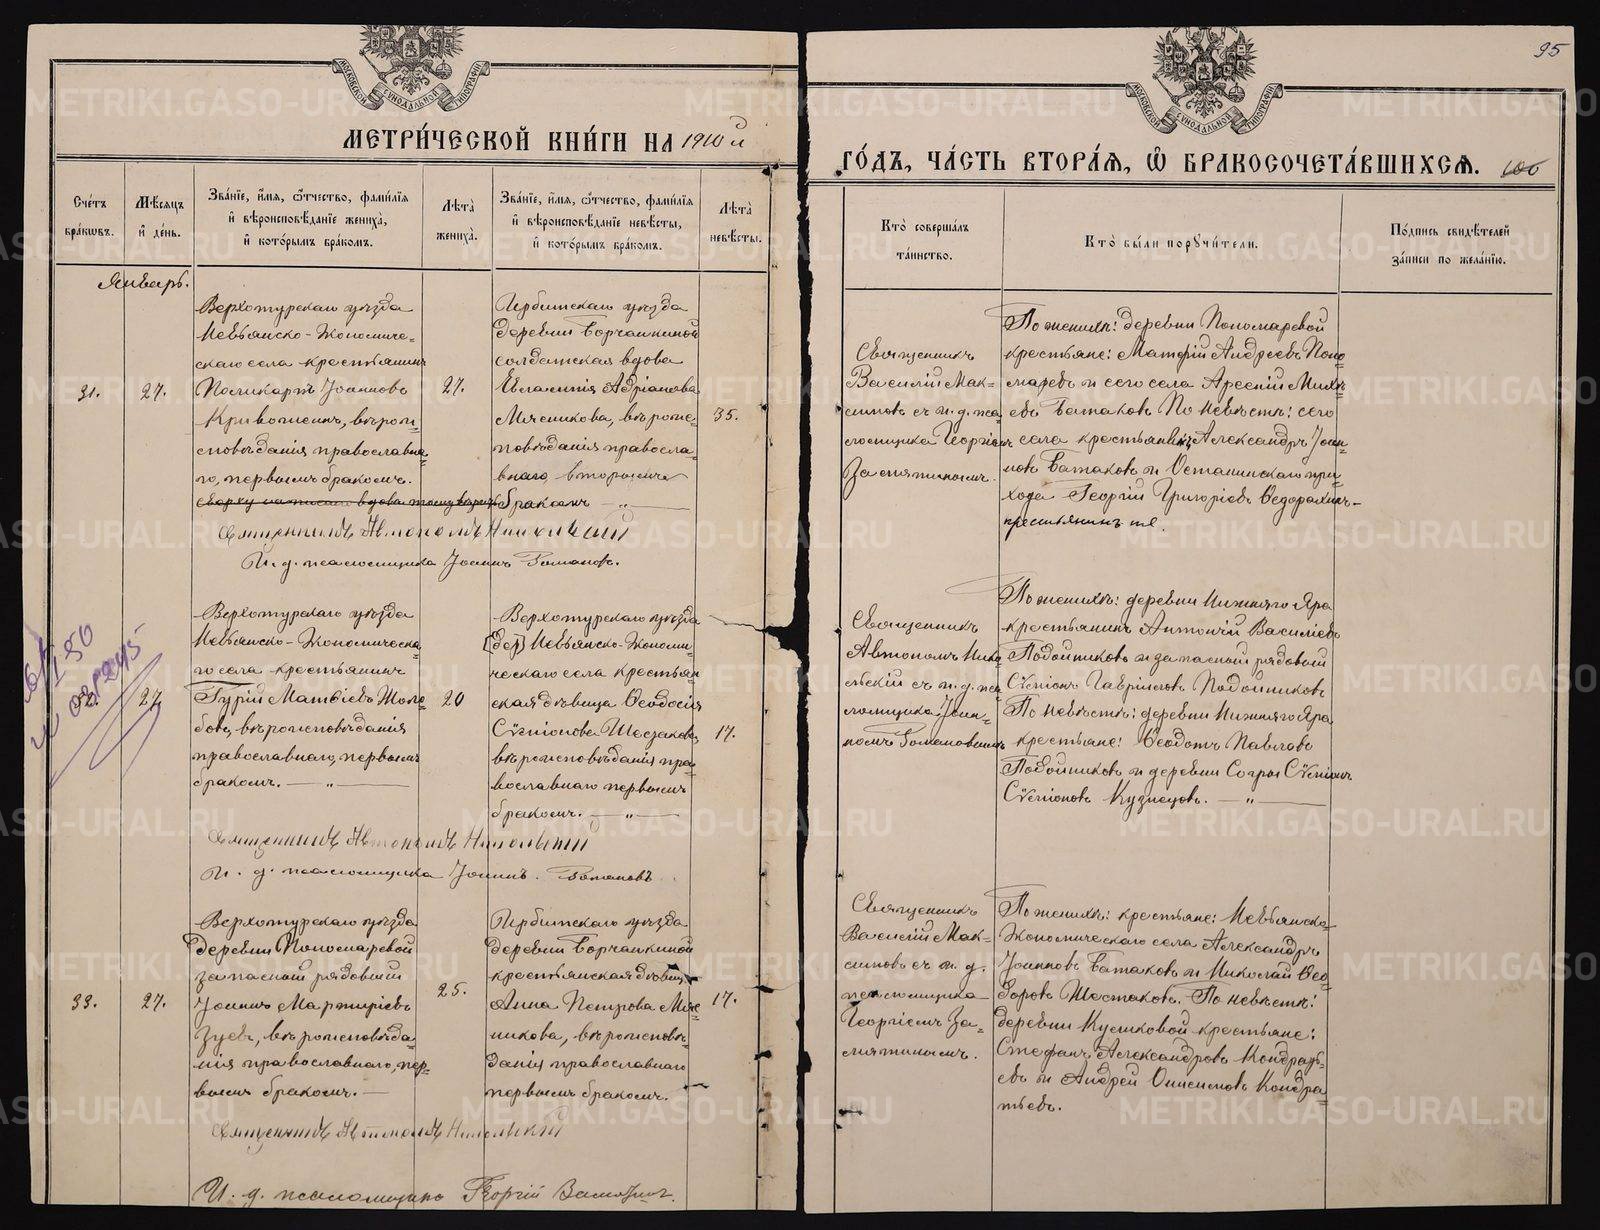 95
МОСКОВСКОЙ СѴНОДАЛЬНОЙ ТИПОГРАФІИ
МОСКОВСКОЙ СѴНОДАЛЬНОЙ ТИПОГРАФІИ
МЕТРИ́ЧЕСКОЙ КНИ́ГИ НА 1910 й
ГО́ДЪ, ЧА́СТЬ ВТОРА́Я, Ѽ БРАКОСОЧЕТА́ВШИХСЯ.
Сче́тъ бра́кωвъ.
Мѣ́сяцъ и҆ де́нь.
Зва́нїе, и҆́мя, ѻ҆́тчество, фами́лїя и҆ вѣроисповѣ́данїе жениха̀, и҆ кото́рымъ бра́комъ.
Лѣ́та жениха̀.
Зва́нїе, и҆́мя, ѻ҆́тчество, фами́лїя и҆ вѣроисповѣ́данїе невѣ́сты, и҆ кото́рымъ бра́комъ.
Лѣ́та невѣ́сты.
Кто̀ соверша́лъ та́инство.
Кто̀ бы́ли порꙋчи́тели.
По́дпись свидѣ́телей за́писи по жела́нїю.
Январь.
31.
27.
Верхотурскаго уѣзда
Невьянско-Экономиче-
скаго села крестьянинъ
Поликарпъ Іоанновъ
Кривошеинъ, вѣроис-
повѣданія православна-
го, первымъ бракомъ.
27.
Ирбитскаго уѣзда
деревни Борчанкиной
солдатская вдова
Евлампія Адріанова
Мясникова, вѣроис-
повѣданія правосла-
внаго вторымъ
бракомъ —„—
35.
Священникъ
Василій Мак-
симовъ съ и. д. пса-
ломщика Георгіемъ
Замятинымъ.
По женихѣ: деревни Пономаревой
крестьяне: Матфій Андреевъ Поно-
маревъ и сего села Арсеній Миха-
евъ Батаковъ По невѣстѣ: сего
села крестьянинъ Александръ Іоан-
новъ Батаковъ и Останинскаго при-
хода Георгій Григоріевъ Ѳедорахинъ-
крестьянинъ же.
Священникъ Автономъ Никольскій
И. д. псаломщика Іоаннъ Томановъ.
27.
Верхотурскаго уѣзда
Невьянско-Экономическа-
го села крестьянинъ
Гурій Матвіевъ Шоло-
бовъ, вѣроисповѣданія
православнаго, первымъ
бракомъ. —„—
20
Верхотурскаго уѣзда
[дер] Невьянско-Экономи-
ческаго села крестьян-
ская дѣвица Ѳеодосія
Сѵмонова Шестакова,
вѣроисповѣданія пра-
вославнаго первымъ
бракомъ. —„—
17.
Священникъ
Автономъ Нико-
льскій съ и. д. пса-
ломщика Іоан-
номъ Томановымъ
По женихѣ: деревни Нижняго Яра
крестьянинъ Антоній Василіевъ
Подойниковъ и запасный рядовый
Сѵмонъ Гавріиловъ Подойниковъ
По невѣстѣ: деревни Нижняго Яра
крестьяне: Ѳеодотъ Павловъ
Подойниковъ и деревни Согры Сѵмонъ
Сѵмоновъ Кузнецовъ. —„—
Священникъ Автономъ Никольскій
И. д. псаломщика Іоаннъ Томановъ
33.
27.
Верхотурскаго уѣзда
деревни Пономаревой
запасный рядовый
Іоаннъ Мартиріевъ
Зуевъ, вѣроисповѣда-
нія православнаго, пер-
вымъ бракомъ. —
25.
Ирбитскаго уѣзда
деревни Борчанкиной
крестьянская дѣвица
Анна Петрова Мяс-
никова, вѣроисповѣ-
данія православнаго
первымъ бракомъ.
17.
Священникъ
Василій Мак-
симовъ съ и. д.
псаломщика
Георгіемъ За-
мятинымъ.
По женихѣ: крестьяне: Невьянско-
Экономическаго села Александръ
Іоанновъ Батаковъ и Николай Ѳео-
доровъ Шестаковъ. По невѣстѣ:
деревни Кушковой крестьяне:
Стефанъ Александровъ Кондрать-
евъ и Андрей Онисимовъ Кондра-
тьевъ.
Священникъ Автономъ Никольскій
И. д. псаломщика Георгій Замятинъ.
METRIKI.GASO-URAL.RU